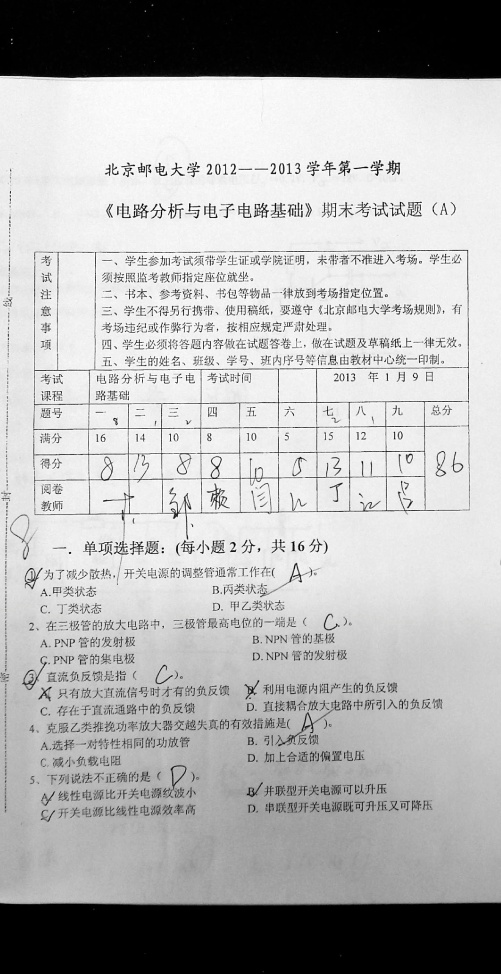 北京邮电大学 2012——2013 学年第一学期
《电路分析与电子电路基础》期末考试试题（A）
考试注意事项
一、学生参加考试须带学生证或学院证明，未带者不准进入考场。学生必须按照监考教师指定座位就坐。
二、书本、参考资料、书包等物品一律放到考场指定位置。
三、学生不得另行携带、使用稿纸，要遵守《北京邮电大学考场规则》，有考场违纪或作弊行为者，按相应规定严肃处理。
四、学生必须将答题内容做在试题答卷上，做在试题及草稿纸上一律无效。
五、学生的姓名、班级、学号、班内序号等信息由教材中心统一印制。
考试课程 电路分析与电子电路基础 考试时间 2013 年 1 月 9 日
题号 一 二 三 四 五 六 七 八 九 总分
8 1 2 2 1
满分 16 14 10 8 10 5 15 12 10
得分 8 13 8 8 10 5 13 11 10 86
阅卷教师
线
封
密
8
一．单项选择题：(每小题 2 分，共 16 分)
1、为了减少散热，开关电源的调整管通常工作在( A )。
A.甲类状态 B.丙类状态
C. 丁类状态 D. 甲乙类状态
2、在三极管的放大电路中，三极管最高电位的一端是（ C ）。
A. PNP 管的发射极 B. NPN 管的基极
C. PNP 管的集电极 D. NPN 管的发射极
3、直流负反馈是指（ C ）。
A. 只有放大直流信号时才有的负反馈 B. 利用电源内阻产生的负反馈
C. 存在于直流通路中的负反馈 D. 直接耦合放大电路中所引入的负反馈
4、克服乙类推挽功率放大器交越失真的有效措施是( A )。
A.选择一对特性相同的功放管 B. 引入负反馈
C. 减小负载电阻 D. 加上合适的偏置电压
5、下列说法不正确的是（ D ）。
A. 线性电源比开关电源纹波小 B. 并联型开关电源可以升压
C. 开关电源比线性电源效率高 D. 串联型开关电源既可升压又可降压